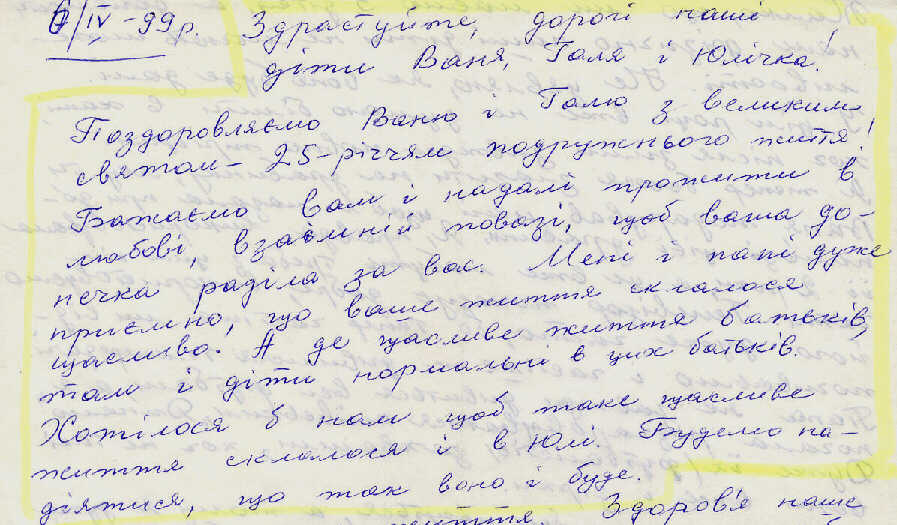 6/IV -99 р. Здрастуйте, дорогі наші
діти Ваня, Галя і Юлічка!
Поздоровляємо Ваню і Галю з великим
святом - 25-річчям подружнього життя!
Бажаємо вам і надалі прожити в
любові, взаємній повазі, щоб ваша до-
нечка раділа за вас. Мені і папі дуже
приємно, що ваше життя склалося
щасливо. А де щасливе життя батьків,
там і діти нормальні в цих батьків.
Хотілося б нам щоб таке щасливе
життя склалося і в Юлі. Будемо на-
діятися, що так воно і буде.
життя. Здоров'я наше